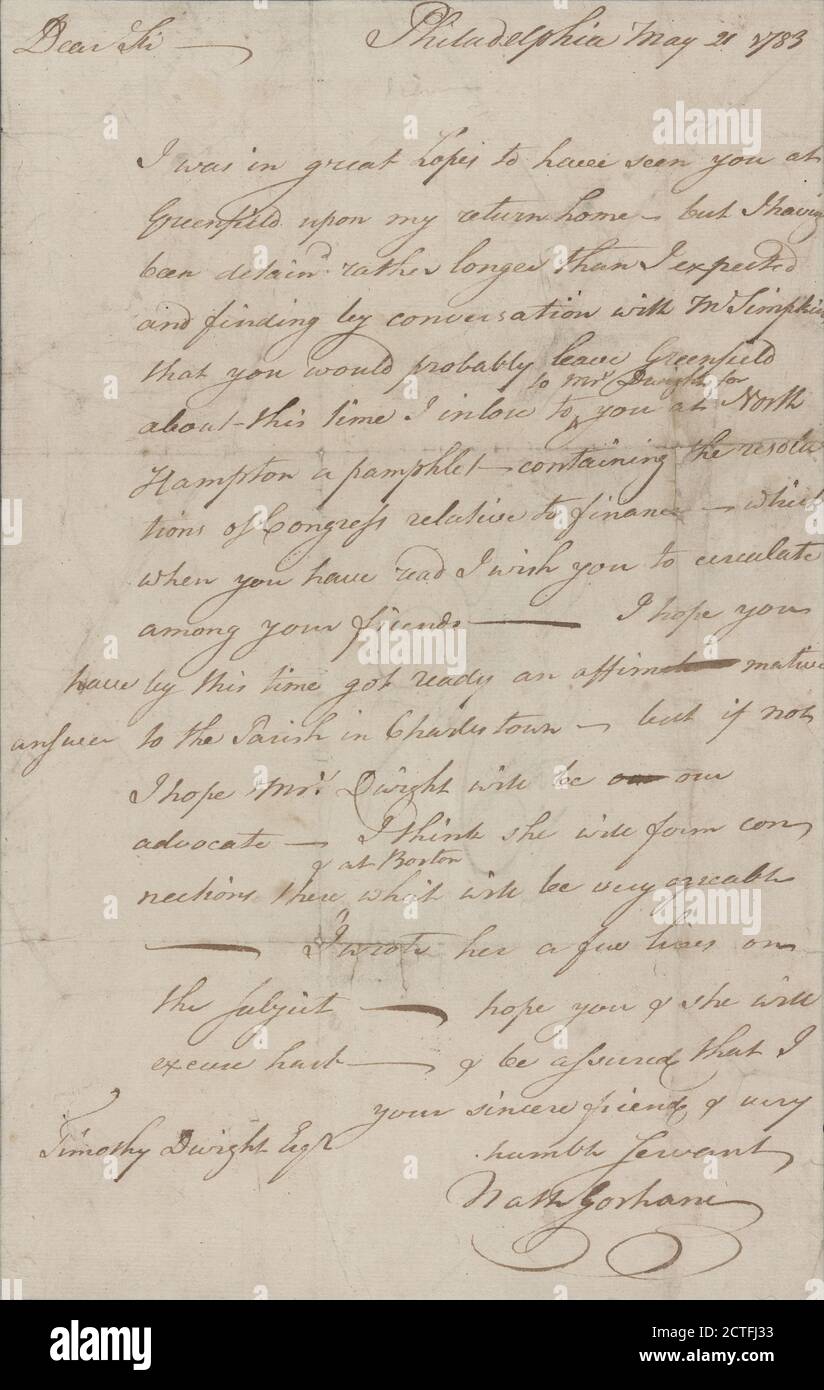 Dear Sir — Philadelphia May 21 1783
I was in great hopes to have seen you at
Greenfield upon my return home — but I having
been detain'd rather longer than I expected
and finding by conversation with Mr Simpkins
that you would probably leave Greenfield
to Mrs Dwight for
about this time I inlose to ^ you at North
Hampton a pamphlet — containing the resolu
tions of Congress relative to finance — which
when you have read I wish you to cerculate
among your friends — I hope you
have by this time got ready an affirm mative
answer to the Parish in Charlestown — but if not
I hope Mrs. Dwight will be our
advocate — I think she will form con
& at Boston
nections there which will be very agreable
— I wrote her a few lines on
the subject — hope you & she will
excuse hast — & be assured that I
your sincere friend & very
Timothy Dwight Esqr humble Servant
Nath Gorham
alamy
Image ID: 2CTFJ33
www.alamy.com